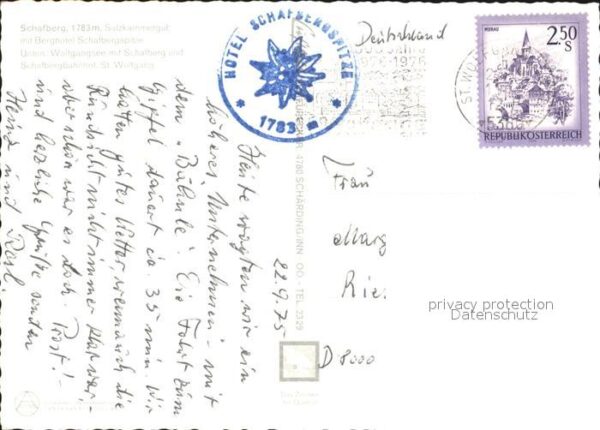 Schafberg, 1783 m, Salzkammergut
mit Berghotel Schafbergspitze
Unten: Wolfgangsee mit Schafberg und
Schafbergbahnhof, St. Wolfgang
HOTEL SCHAFBERGSPITZE
* 1783 m *
Deutschland
ST. WOLFG
5360
MURAU
2.50
S
REPUBLIK ÖSTERREICH
4780 SCHÄRDING/INN OÖ - TEL. 2329
22.9.75
Heute wagten wir ein
höheres Unternehmen - mit
dem "Bähnle". Die Fahrt zum
Gipfel dauert ca. 35 min. Wir
hatten gutes Wetter, wenn auch die
Rundsicht nicht immer klar war -
aber schön war es doch. Prost! -
und herzliche Grüße senden
Heinz und Resl
Frau
Marg
Rie
D 8000
privacy protection
Datenschutz